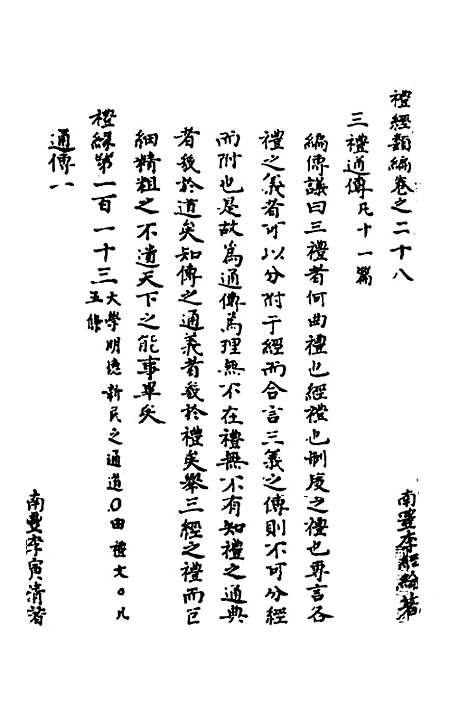 禮經類編卷之二十八
南豐李經綸著
三禮通傳凡十一篇
編傳議曰三禮者何曲禮也經禮也制度之禮也專言各
禮之義者可以分附于經而合言三義之傳則不可分經
而附也是故為通傳為理無不在禮無不有知禮之通典
者幾於道矣知傳之通義者幾於禮矣舉三經之禮而巨
細精粗之不遺天下之能事畢矣
禮綠第一百一十三 大學明德新民之通道〇田禮文〇凡
五條
南豐李寅清著
通傳一